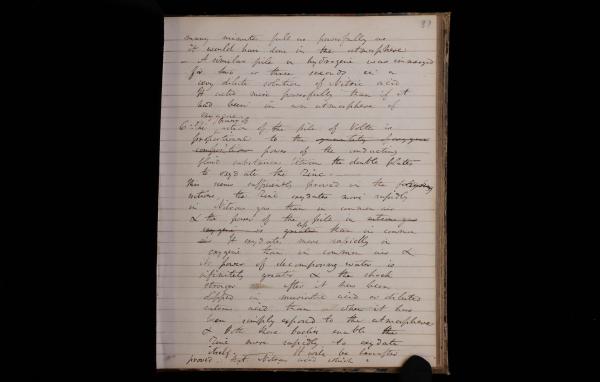 many minutes full as powerfully as
it would have done in the atmosphere
– A similar pile in hydrogene was immersed
for two or three seconds in a
very dilute solution of Nitric acid
It acted more powerfully than if it
had been in an atmosphere of
oxygene
6 The action of the pile of Volta is
proportional to the quantity of oxygene
composition power of the conducting
fluid substance between the double plates
to oxydate the Zinc. –
This seems sufficiently proved in the
sections, the Zinc oxydates more rapidly
in Nitrous gas than in common air
& the power of the pile in nitrous gas
oxygene is greater less than in common
air It oxydates more rapidly in
oxygene than in common air &
its power of decomposing water is
infinitely greater & the shock
stronger after it has been
dipped in muriatic acid or diluted
nitrous acid than when it has
been simply exposed to the atmosphere
& both these bodies enable the
Zinc more rapidly to oxydate
itself. It will be hereafter
proved that Nitrous acid which